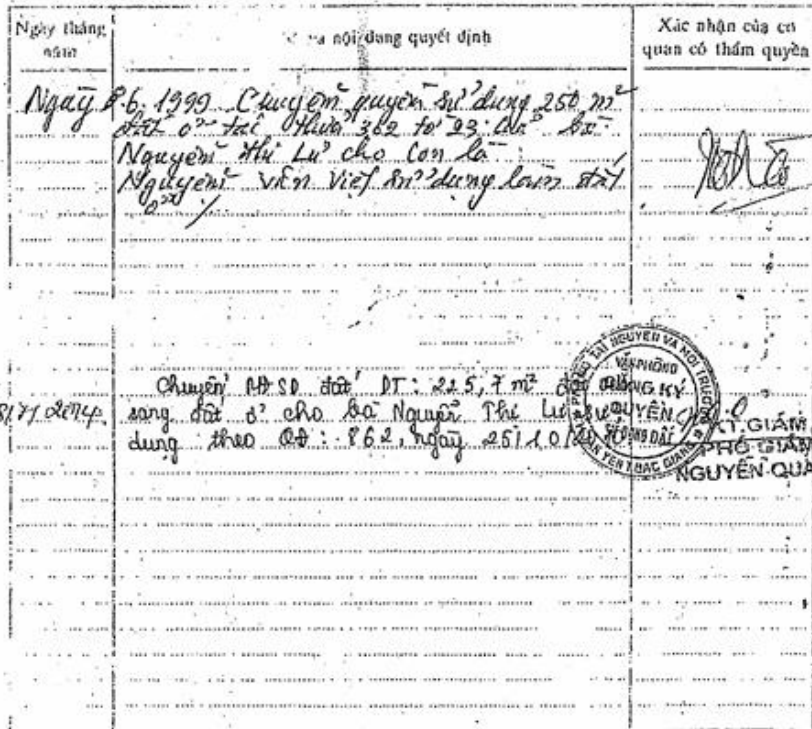 Ngày tháng năm
nội dung quyết định
Xác nhận của cơ quan có thẩm quyền
Ngày 8.6.1999 Chuyển quyền sử dụng 250 m²
đất ở tại thửa 362 tờ 23 của bà
Nguyễn Thị Lư cho Con là
Nguyễn Văn Việt sử dụng làm đất
ở /.
Chuyển MĐSD đất DT: 225,7 m²
sang đất ở cho bà Nguyễn Thị Lư sử
dụng theo QĐ: 862, ngày 25/10/
TÀI NGUYÊN VÀ MÔI TRƯỜNG
VĂN PHÒNG
ĐĂNG KÝ
QUYỀN
SỬ DỤNG ĐẤT
YÊN T. BẮC GIANG
KT. GIÁM
PHÓ GIÁM
NGUYỄN QUA